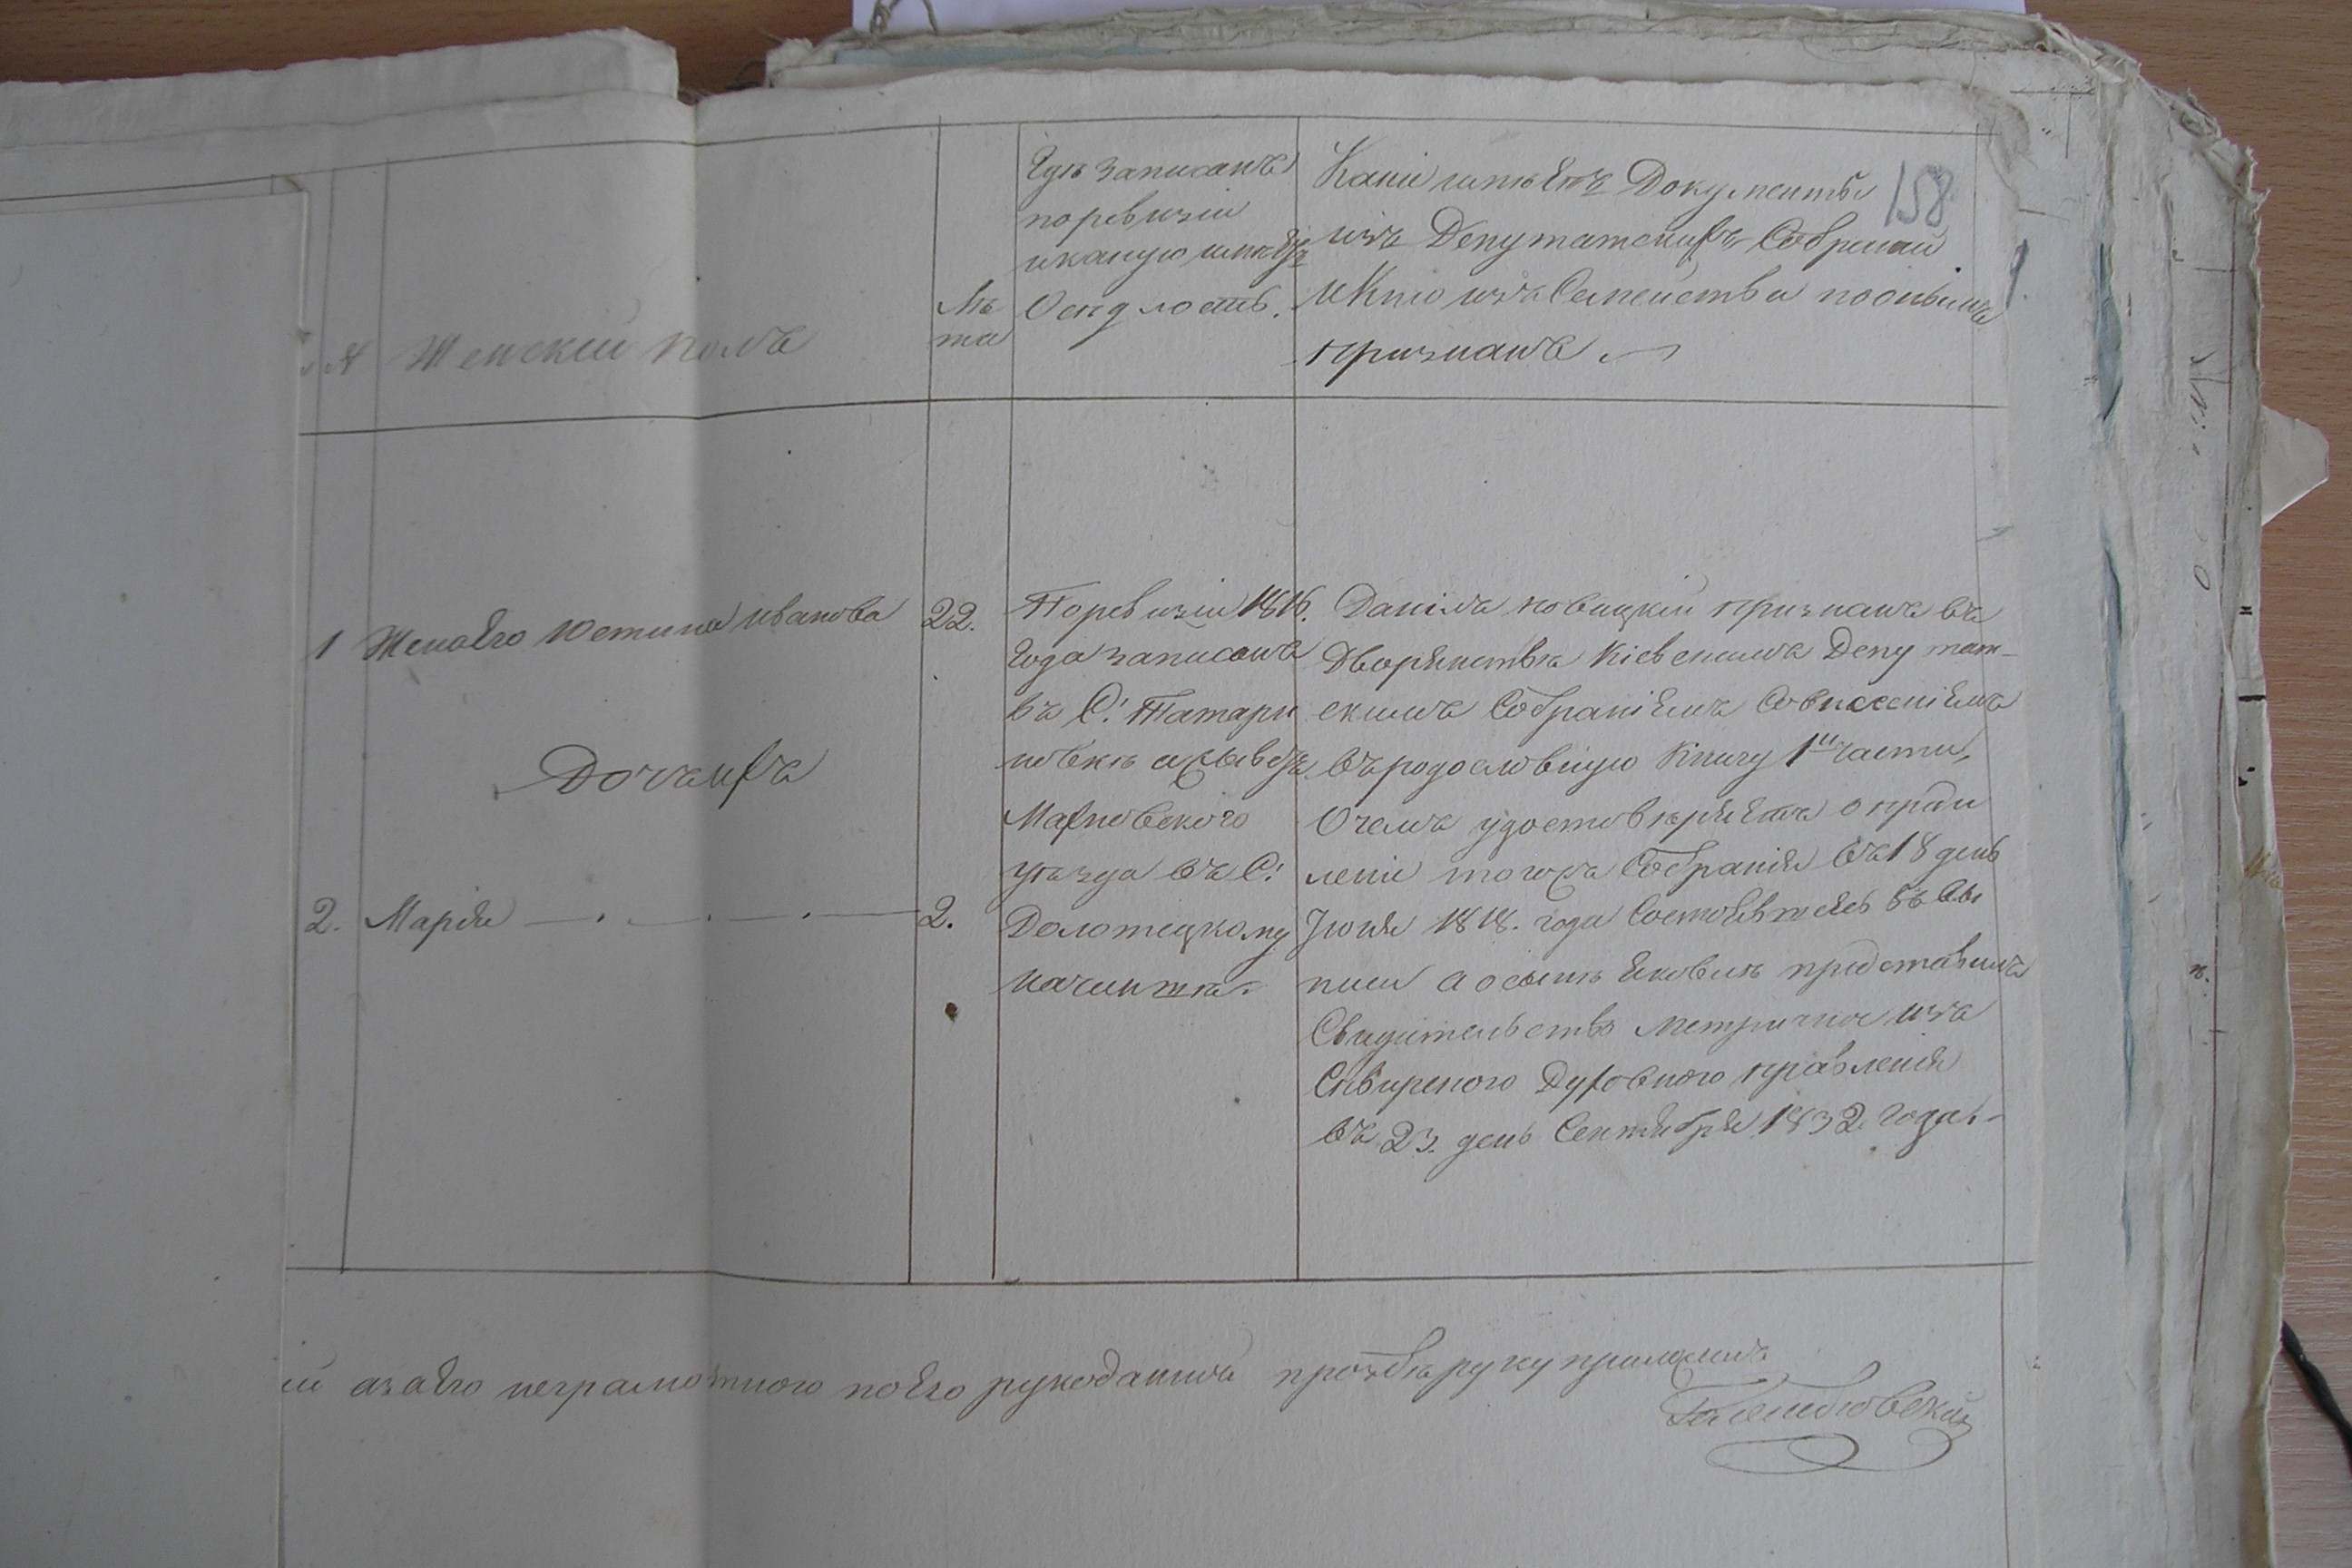 158
№ Женскій полъ
Лѣ
та
Гдѣ записанъ
поревизіи
икакую имѣетъ
Осѣдлость.
Какіе имѣетъ Документы
изъ Депутатскихъ Собраній
иКто изъ Семейства поонымъ
признанъ
1 Женаего Юстина иванова 22.
Дочь ихъ
2. Марія 2.
Поревизіи 1816.
Года записанъ
въ С: Татари
новкѣ ажыветъ
Махновского
уѣзда въ С:
Долотецкому
начинша.
Данила новицкій признанъ въ
Дворянствѣ Кіевскимъ Депутат-
скимъ Собраніемъ Совнесеніемъ
въродословную Книгу 1й части,
Очемъ удостовѣряетъ опреде
леніе тогожъ Собранія въ 18 день
Іюня 1818. года Состоявшеясь въ Вы
писи а осынѣ Яковѣ представилъ
Свидѣтельство метричное изъ
Сквирского Духовного правленія
въ 23. день Сентября 1832 года.
ій азаего неграмотного поего рукоданной прозбѣ руку приложилъ